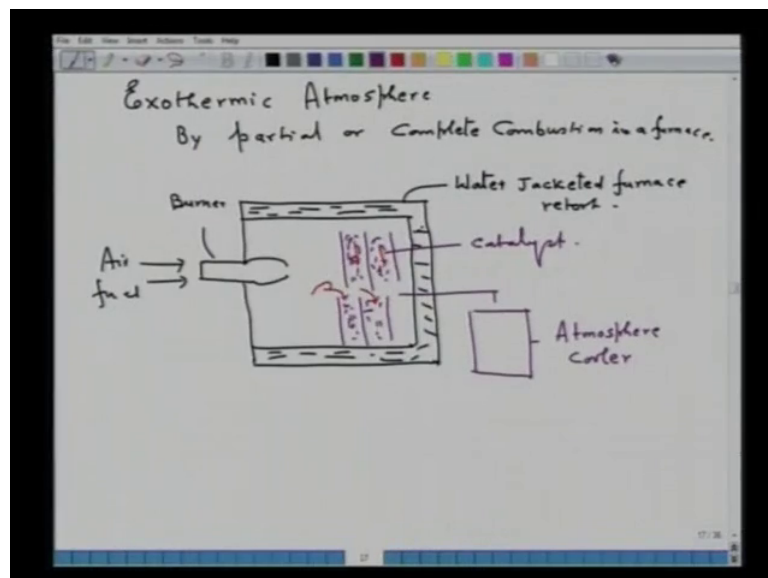 File Edit View Insert Actions Tools Help
Exothermic Atmosphere
By partial or Complete Combustion in a furnace.
Water Jacketed furnace
retort.
Burner
Catalyst.
Air
fuel
Atmosphere
Cooler
17/36
17